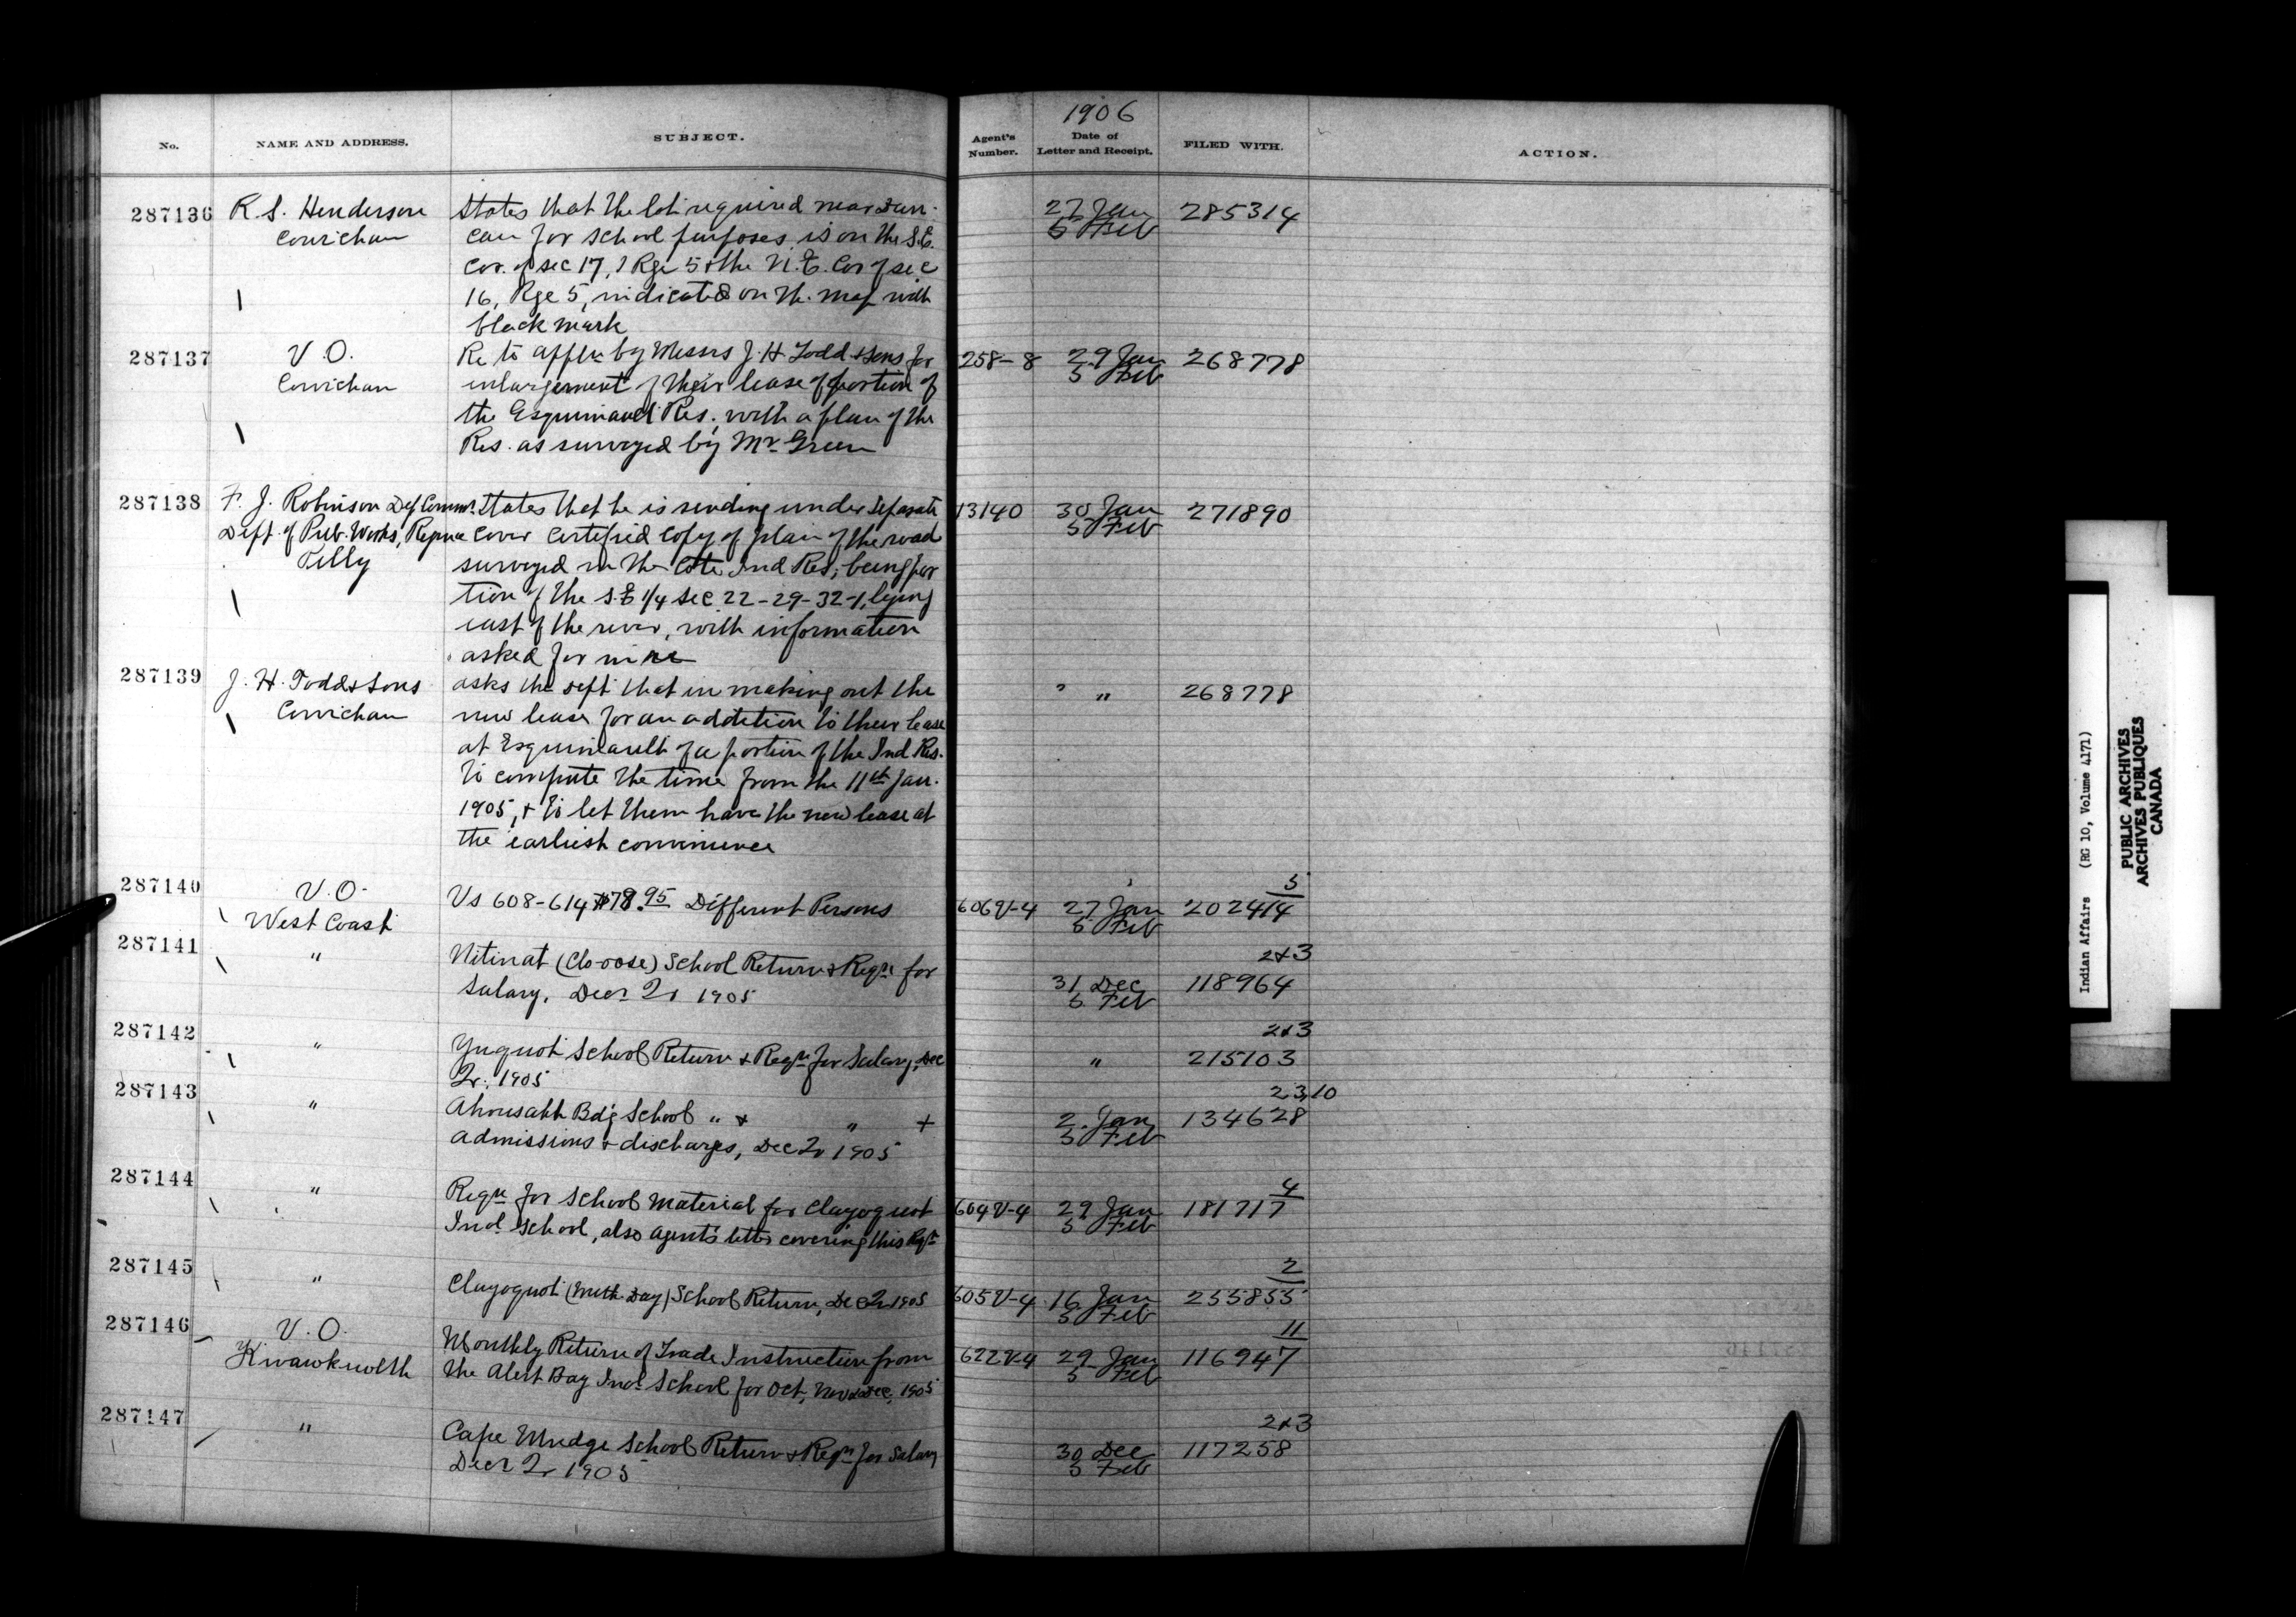 1906
No.
NAME AND ADDRESS.
SUBJECT.
Agent's Number.
Date of Letter and Receipt.
FILED WITH.
ACTION.
287136 R. S. Henderson States that the lot required near Dun- 27 Jan 285314
Cowichan can for school purposes is on the S.E. 5 Feb
Cor. of sec 17, Rge 5 & the N.E. Cor of sec
16, Rge 5, indicated on the map with
black mark
287137 V. O. Re to appln by Messrs J. H. Todd & Sons for 258-8 29 Jan 268778
Cowichan enlargement of their lease of portion of 5 Feb
the Esquimault Res. with a plan of the
Res. as surveyed by Mr Green
287138 F. J. Robinson Dep Commr. States that he is sending under separate 13140 30 Jan 271890
Dept. of Pub. Works, Regina cover certified copy of plan of the road 5 Feb
Pelly surveyed in the Cote Ind Res, being por
tion of the S.E 1/4 sec 22-29-32-1, lying
east of the river, with information
asked for in re
287139 J. H. Todd & Sons asks the Dept that in making out the " 268778
Cowichan new lease for an addition to their lease
at Esquimault of a portion of the Ind Res.
to compute the time from the 11th Jan.
1905, & to let them have the new lease at
the earliest convenience
287140 V. O. Vs 608-614 $78.95 Different Persons 606V-4 27 Jan 202414 5
West Coast 5 Feb
287141 " Nitinat (Clo-oose) School Return & Reqn for 2&3
Salary, Decr Qr 1905 31 Dec 118964
5 Feb
287142 2&3
" Yuquot School Return & Reqn for Salary, Dec " 215103
Qr. 1905
287143 2,3,10
" Ahousaht Bdg School " & " & 2 Jan 134628
admissions & discharges, Dec Qr 1905 5 Feb
287144 4
" Reqn for School material for Clayoquot 604V-4 29 Jan 181717
Indl School, also agent's letter covering this Reqn 5 Feb
287145 2
" Clayoquot (Meth. Day) School Return, Dec Qr 1905 605V-4 16 Jan 255855
5 Feb
287146 V. O. 11
Kwawkewlth Monthly Return of Trade Instruction from 622V-4 29 Jan 116947
the Alert Bay Indl School for Oct, Nov & Dec, 1905 5 Feb
287147 2&3
" Cape Mudge School Return & Reqn for Salary 30 Dec 117258
Decr Qr 1905 5 Feb
Indian Affairs (RG 10, Volume 4171)
PUBLIC ARCHIVES
ARCHIVES PUBLIQUES
CANADA